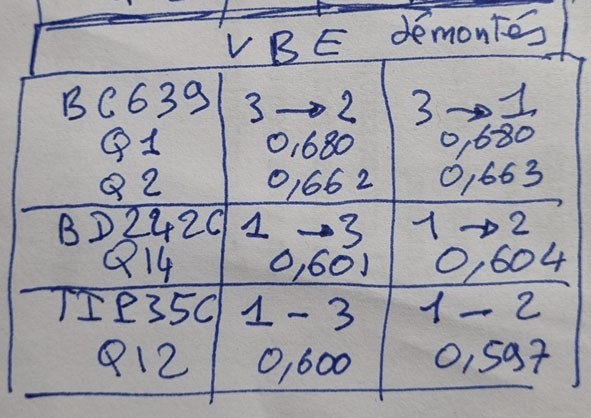 VBE démontés
BC639 3 → 2 3 → 1
Q1 0,680 0,680
Q2 0,662 0,663
BD242C 1 → 3 1 → 2
Q14 0,601 0,604
TIP35C 1 - 3 1 - 2
Q12 0,600 0,597